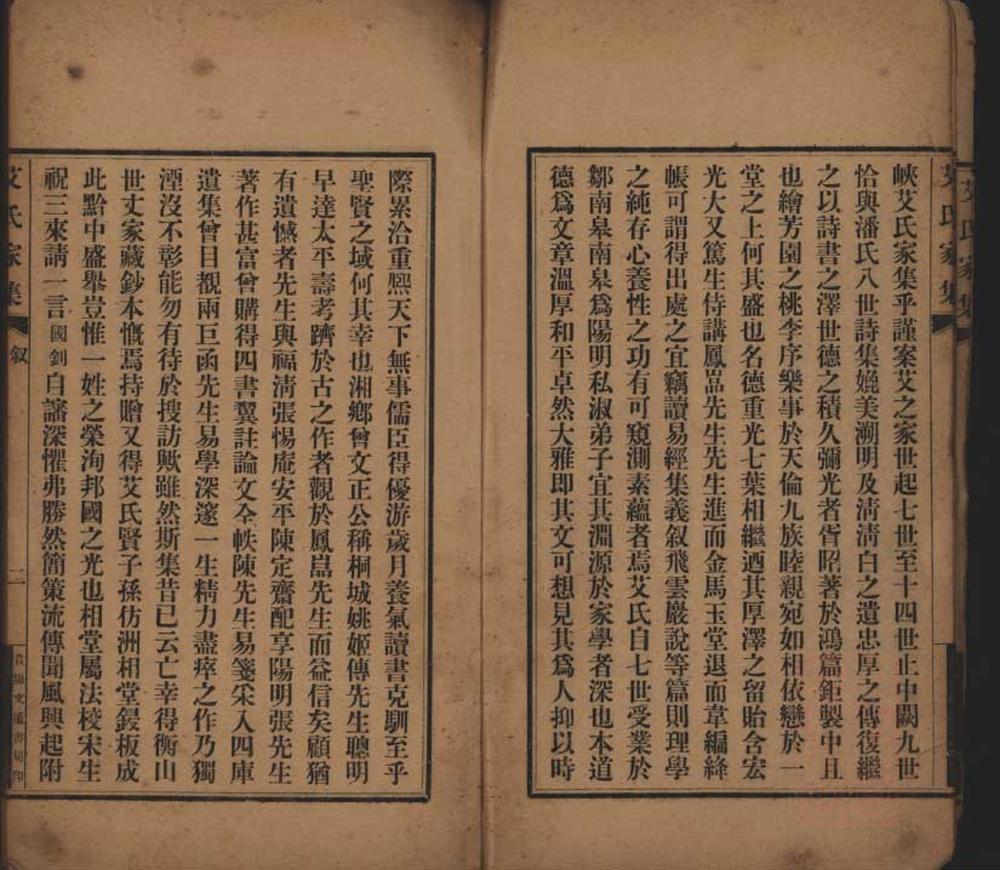 艾氏家集
峽艾氏家集乎謹案艾之家世起七世至十四世止中闕九世
恰與潘氏八世詩集媲美溯明及淸淸白之遺忠厚之傳復繼
之以詩書之澤世德之積久彌光者胥昭著於鴻篇鉅製中且
也繪芳園之桃李序樂事於天倫九族睦親宛如相依戀於一
堂之上何其盛也名德重光七葉相繼迺其厚澤之留貽含宏
光大又篤生侍講鳳嵓先生先生進而金馬玉堂退而韋編絳
帳可謂得出處之宜竊讀易經集義叙飛雲巖說等篇則理學
之純存心養性之功有可窺測素蘊者焉艾氏自七世受業於
鄒南皋南皋爲陽明私淑弟子宜其淵源於家學者深也本道
德爲文章溫厚和平卓然大雅即其文可想見其爲人抑以時
際累洽重熙天下無事儒臣得優游歲月養氣讀書克馴至乎
聖賢之域何其幸也湘鄉曾文正公稱桐城姚姬傳先生聰明
早達太平壽考躋於古之作者觀於鳳嵓先生而益信矣顧猶
有遺憾者先生與福淸張惕庵安平陳定齋配享陽明張先生
著作甚富曾購得四書翼註論文全帙陳先生易箋采入四庫
遺集曾目覩兩巨函先生易學深邃一生精力盡瘁之作乃獨
湮沒不彰能勿有待於搜訪歟雖然斯集昔已云亡幸得衡山
世丈家藏鈔本慨焉持贈又得艾氏賢子孫仿洲相堂鋟板成
此黔中盛舉豈惟一姓之榮洵邦國之光也相堂屬法校宋生
祝三來請一言國釗自譾深懼弗勝然簡策流傳聞風興起附
艾氏家集 叙 二 貴陽文通書局印